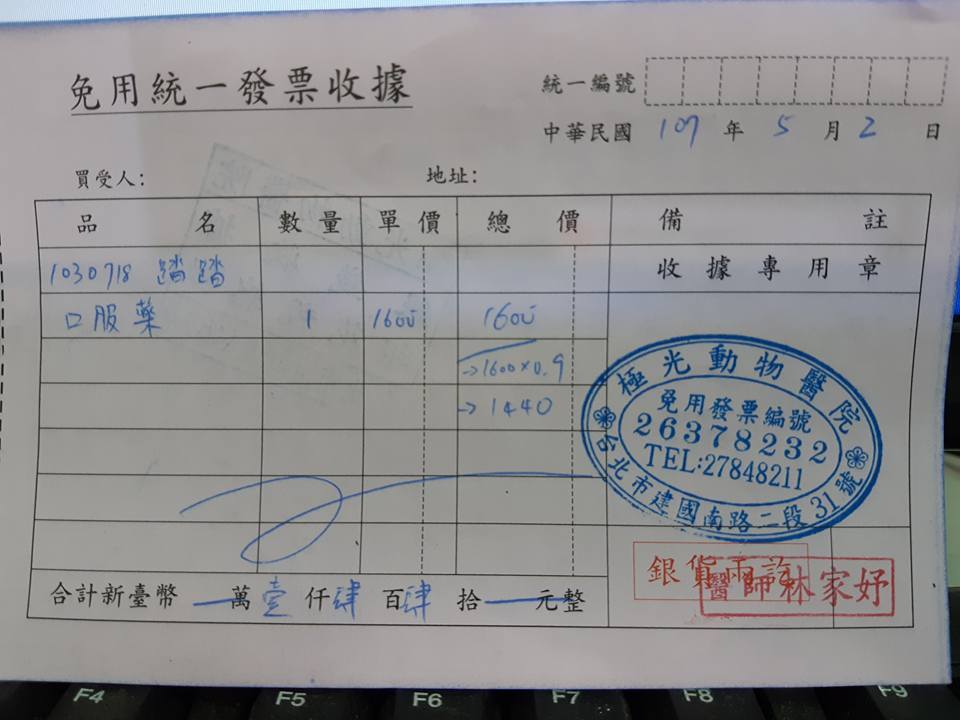 免用統一發票收據
統一編號
中華民國 107 年 5 月 2 日
買受人: 地址:
品名 數量 單價 總價 備註
1030718 踏踏 收據專用章
口服藥 1 1600 1600
→1600×0.9
→1440
極光動物醫院
免用發票編號
26378232
TEL:27848211
台北市建國南路二段31號
銀貨兩訖
醫師林家妤
合計新臺幣 萬壹仟肆百肆拾 元整
F4 F5 F6 F7 F8 F9